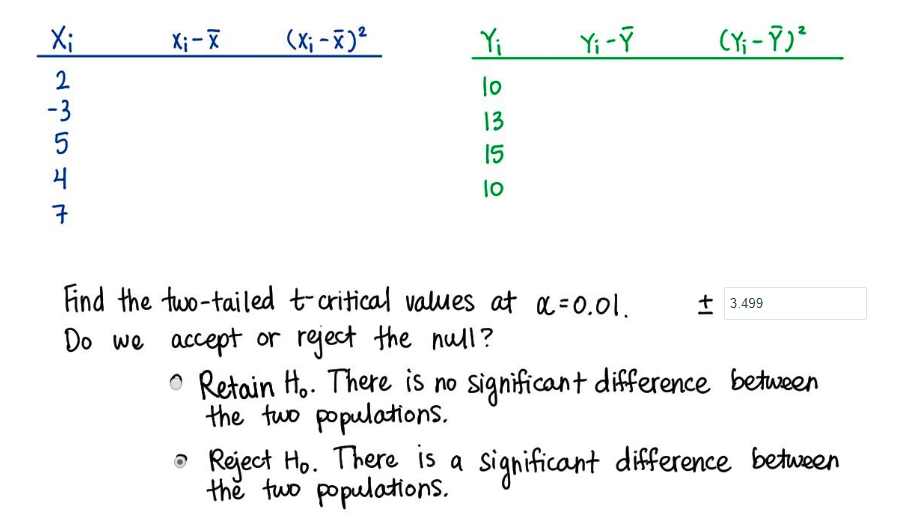 Xi Xi - X̄ (Xi - X̄)² Yi Yi - Ȳ (Yi - Ȳ)²
2 10
-3 13
5 15
4 10
7
Find the two-tailed t-critical values at α = 0.01. ± 3.499
Do we accept or reject the null?
Retain H₀. There is no significant difference between
the two populations.
Reject H₀. There is a significant difference between
the two populations.